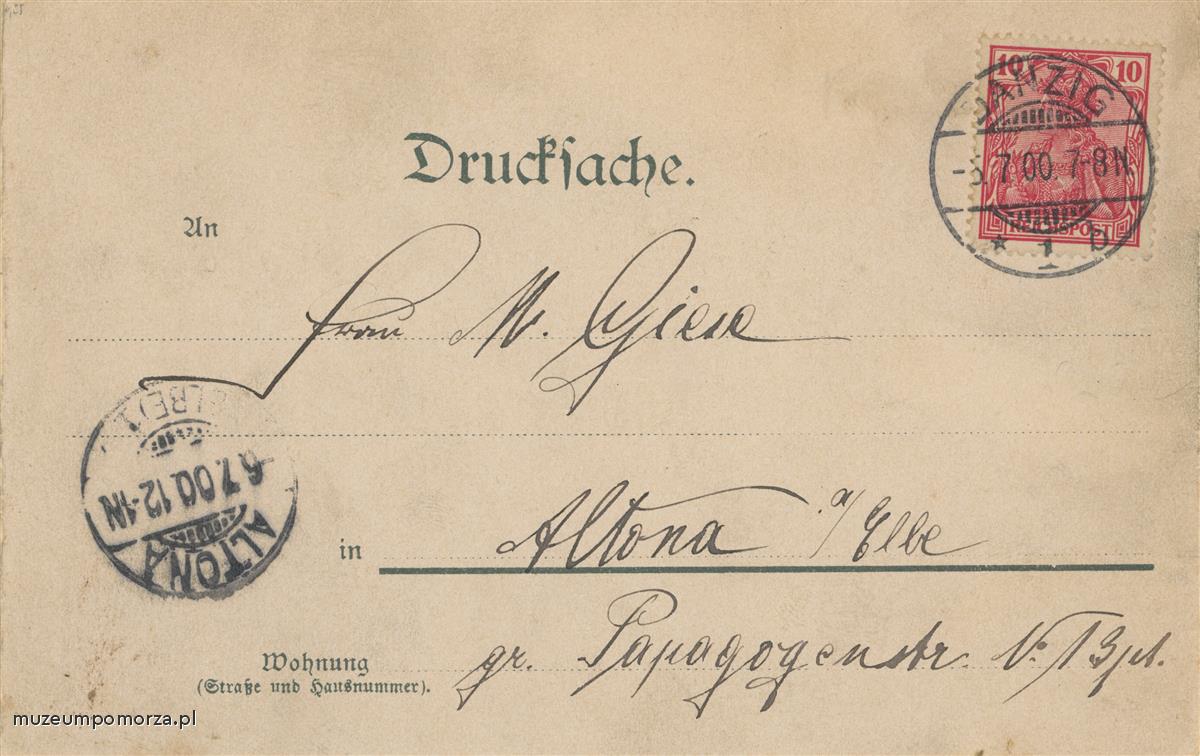 10 10
REICHSPOST
DANZIG
7.00. 7-8N.
* 1 D
Drucksache.
An
Frau M. Giese
ALTONA
6.7.00.12-1N
in Altona a/ Elbe
Wohnung
(Straße und Hausnummer).
gr. Papagogenstr. 13 pt.
muzeumpomorza.pl